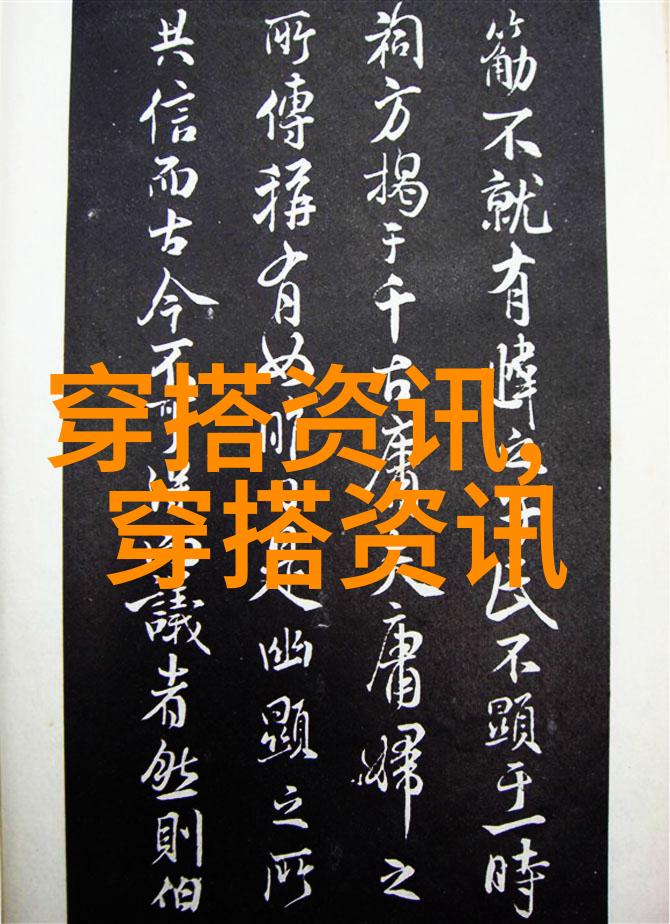 穿搭资讯,
穿搭资讯
不就有之民不顯于一時
祠方揭于千古庸夫庸婦之
所傳稱有如昨日是幽顯之所
共信而古今不可議者然則伯